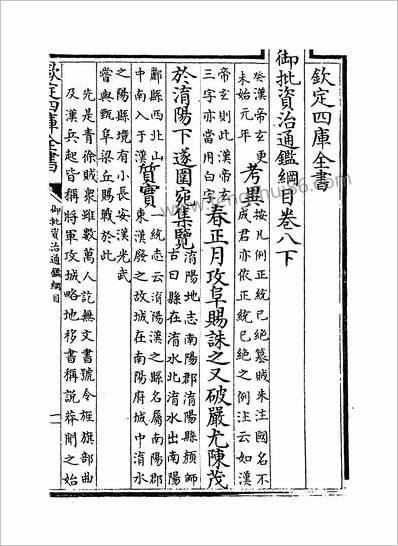 欽定四庫全書
御批資治通鑑綱目卷八下
癸漢帝玄更
未始元年
考異
按凡例正統已絶簒賊未注國名不
成君亦依正統已絶之例注云如漢
帝玄則此漢帝玄
三字亦當用白字
春正月攻阜賜誅之又破嚴尤陳茂
於淯陽下遂圍宛集覽
淯陽地志南陽郡淯陽縣顔師
古曰縣在淯水北淯水出南陽
酈縣西北山
中南入于漢
質實
一統志云淯陽漢之縣名屬南陽郡
東漢廢之故城在南陽府城中淯水
之陽縣境有小長安漢光武
嘗與甄阜梁丘賜戰於此
先是青徐賊衆雖數萬人訖無文書號令旌旗部曲
及漢兵起皆稱將軍攻城略地移書稱説莽聞之始
欽定四庫全書
御批資治通鑑綱目
一